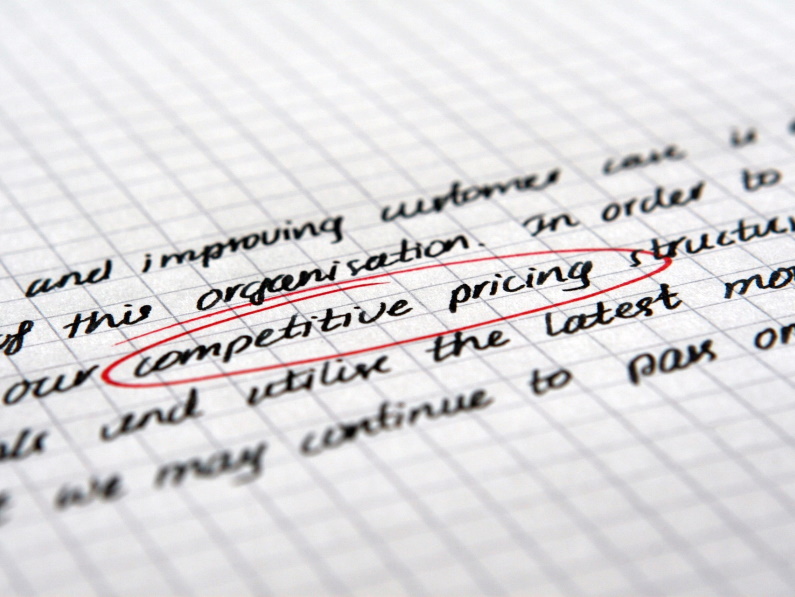 and improving customer care is
of this organisation. In order to
our competitive pricing structur
and utilise the latest mo
we may continue to pass on